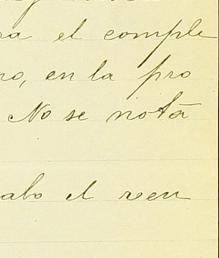 ra el comple
no, en la pro
No se nota
abo el reen